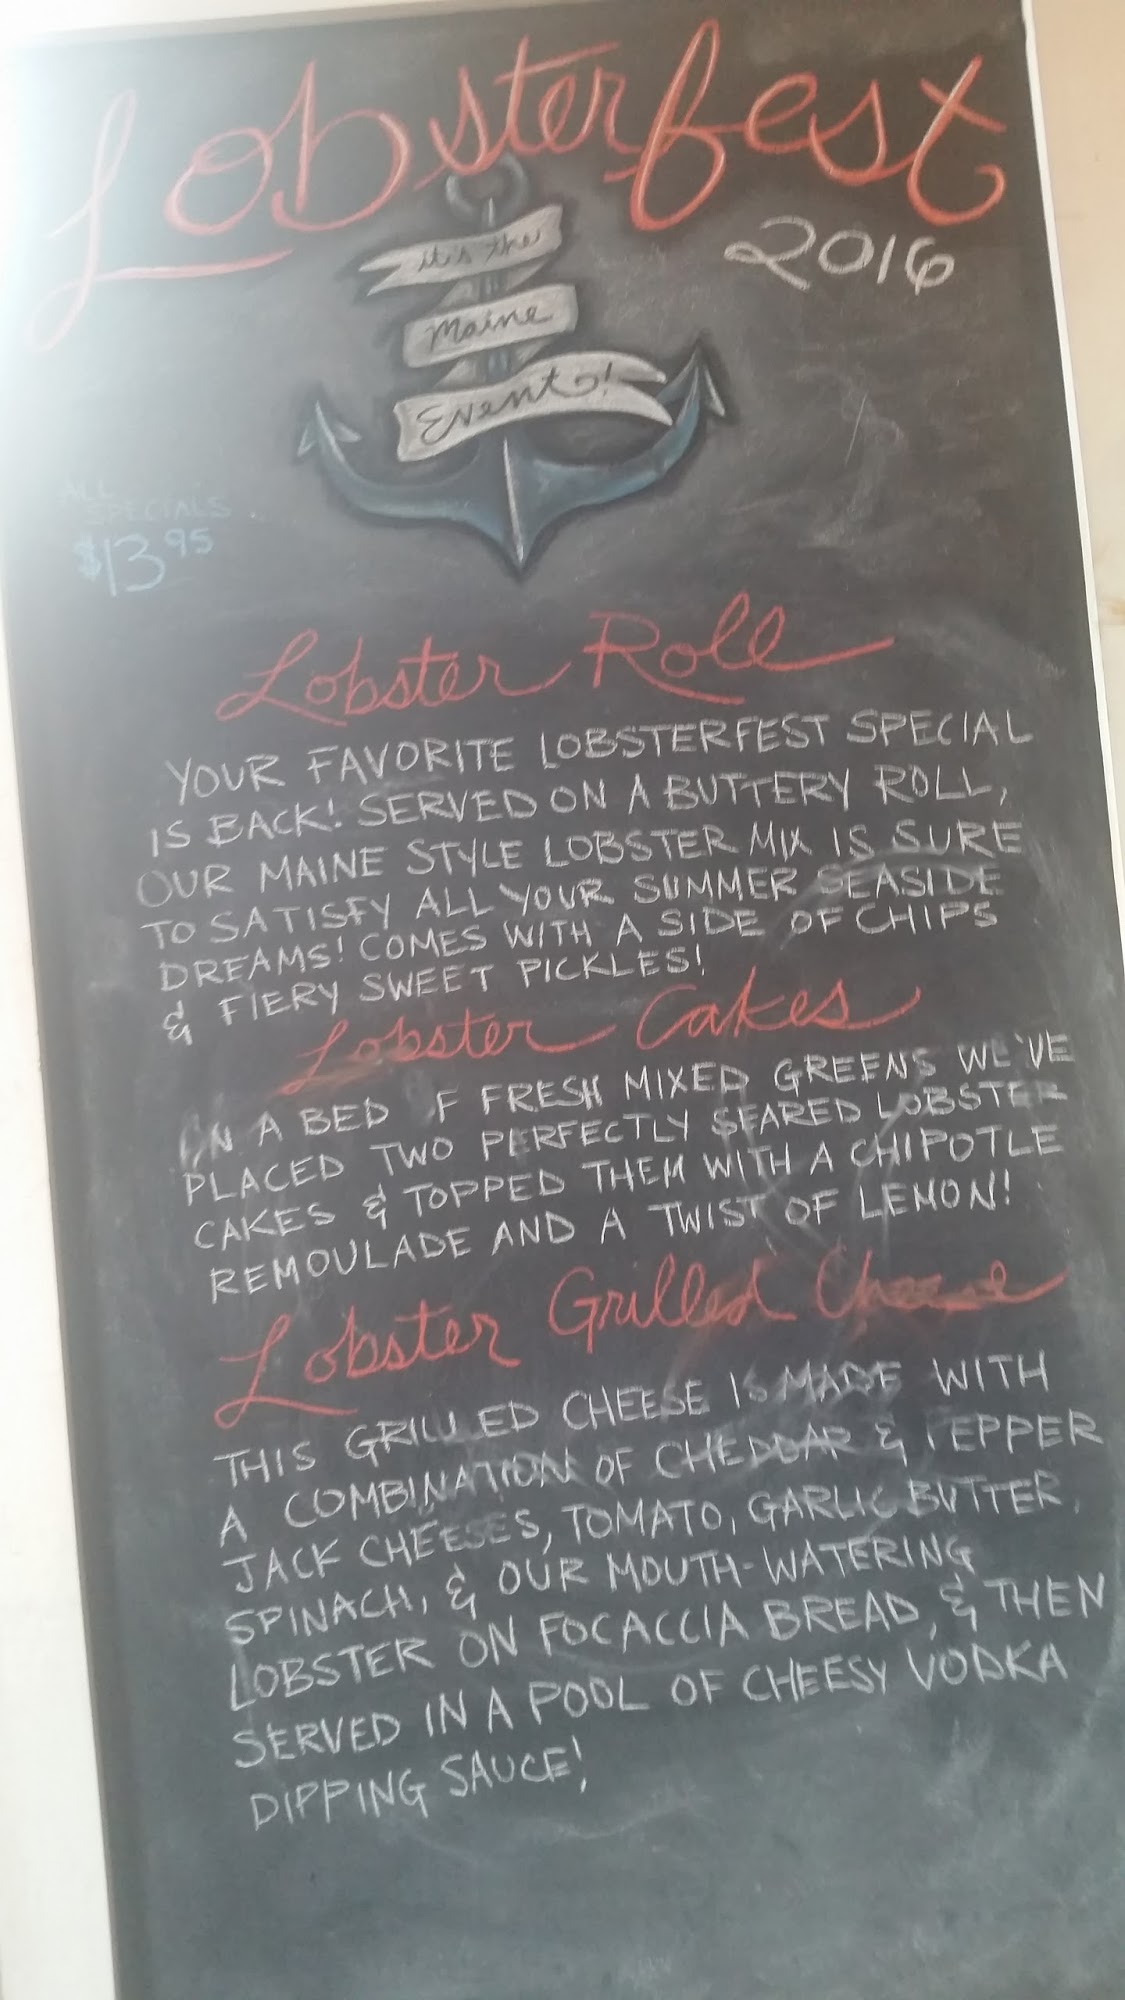 Lobsterfest
2016
it's the
Maine
Event!
ALL
SPECIALS
$13.95
Lobster Roll
YOUR FAVORITE LOBSTERFEST SPECIAL
IS BACK! SERVED ON A BUTTERY ROLL,
OUR MAINE STYLE LOBSTER MIX IS SURE
TO SATISFY ALL YOUR SUMMER SEASIDE
DREAMS! COMES WITH A SIDE OF CHIPS
& FIERY SWEET PICKLES!
Lobster Cakes
A BED F FRESH MIXED GREENS WE'VE
PLACED TWO PERFECTLY SEARED LOBSTER
CAKES & TOPPED THEM WITH A CHIPOTLE
REMOULADE AND A TWIST OF LEMON!
Lobster Grilled Cheese
THIS GRILLED CHEESE IS MADE WITH
A COMBINATION OF CHEDDAR & PEPPER
JACK CHEESES, TOMATO, GARLIC BUTTER,
SPINACH, & OUR MOUTH-WATERING
LOBSTER ON FOCACCIA BREAD, & THEN
SERVED IN A POOL OF CHEESY VODKA
DIPPING SAUCE!